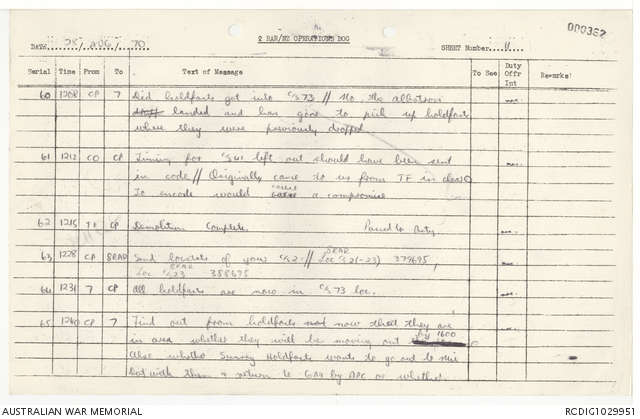 000362
2 RAR/NZ OPERATIONS LOG
DATE 25/ AUG / 70
SHEET Number 11
Serial Time From To Text of Message To See Duty Offr Int Remarks
60 1208 CP 7 Did holdfasts get into C/S 73 // No, the albatross
landed and has gone to pick up holdfasts
where they were previously dropped
61 1212 CO CP Timing for C/S 41 left out should have been sent
in code // Originally came to us from TF in clear
To encode would cause a compromise
62 1215 TF CP Demolition Complete. Passed to Arty
63 1228 CP 8RAR Send locstats of your C/S 2 // 8RAR Loc C/S 2 (-23) 379695,
Loc 8RAR C/S 23 388675
64 1231 7 CP All holdfasts are now in C/S 73 loc.
65 1240 CP 7 Find out from holdfasts now that they are
in area whether they will be moving out 1600
Also whether Survey Holdfasts wants to go out to
with them & return to by APC or whether
AUSTRALIAN WAR MEMORIAL
RCDIG1029951